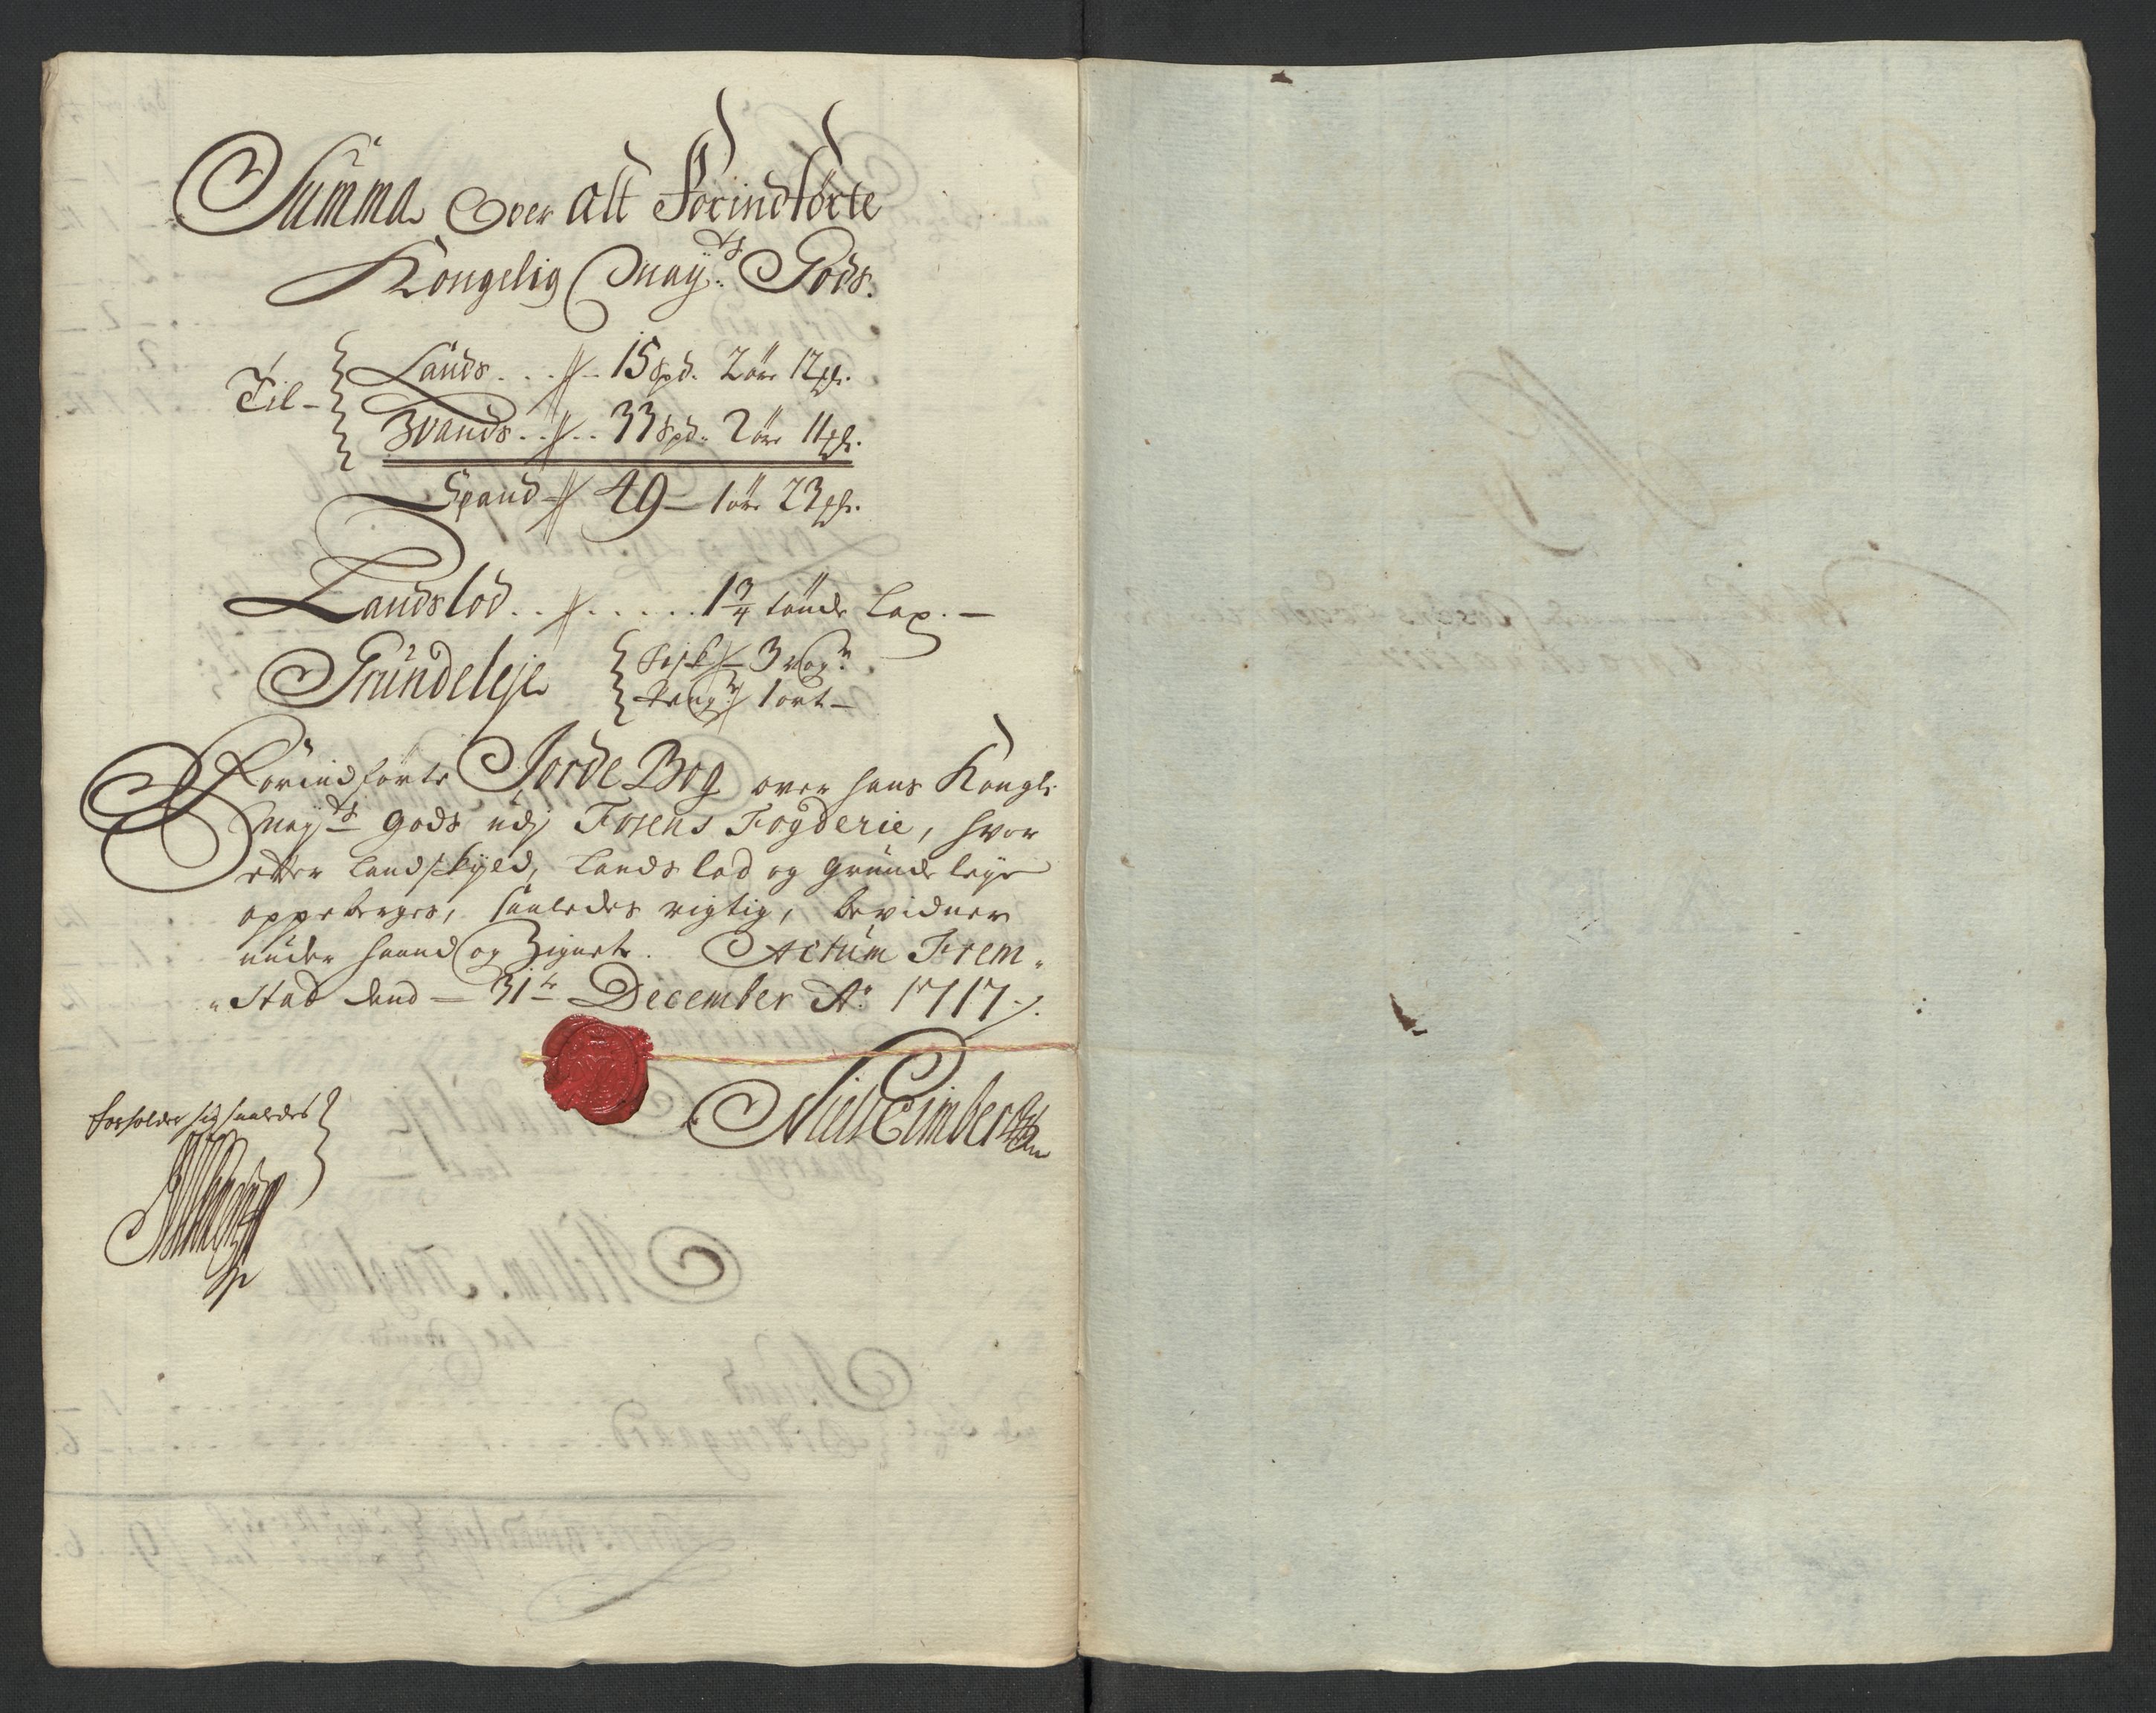 Summa Over alt Forindførte
Kongelig May:ts Gods.
Til - Lands . . . 15 Spd. 2 øre 12 ß.
3vands . . . 33 Spd. 2 øre 11 ß.
Spand 49 - 1 øre 23 ß.
Landslod . . . . . . 1 3/4 tønde Lax. -
Grundeleje Fisk - 3 Wog:r
Peng:r 1 ort -
Forindførte Jorde Bog over hans Kongl:
May:ts Gods udj Fosens Fogderie, hvor
efter Landskyld, Landslod og Grundeleje
oppeberges, saaledes rigtig, bevidner
under haand og Zignete. Actum Frem„
„stad dend - 31te December A:o 1717 /.
Forholder sig saaledes
Niels Eimber